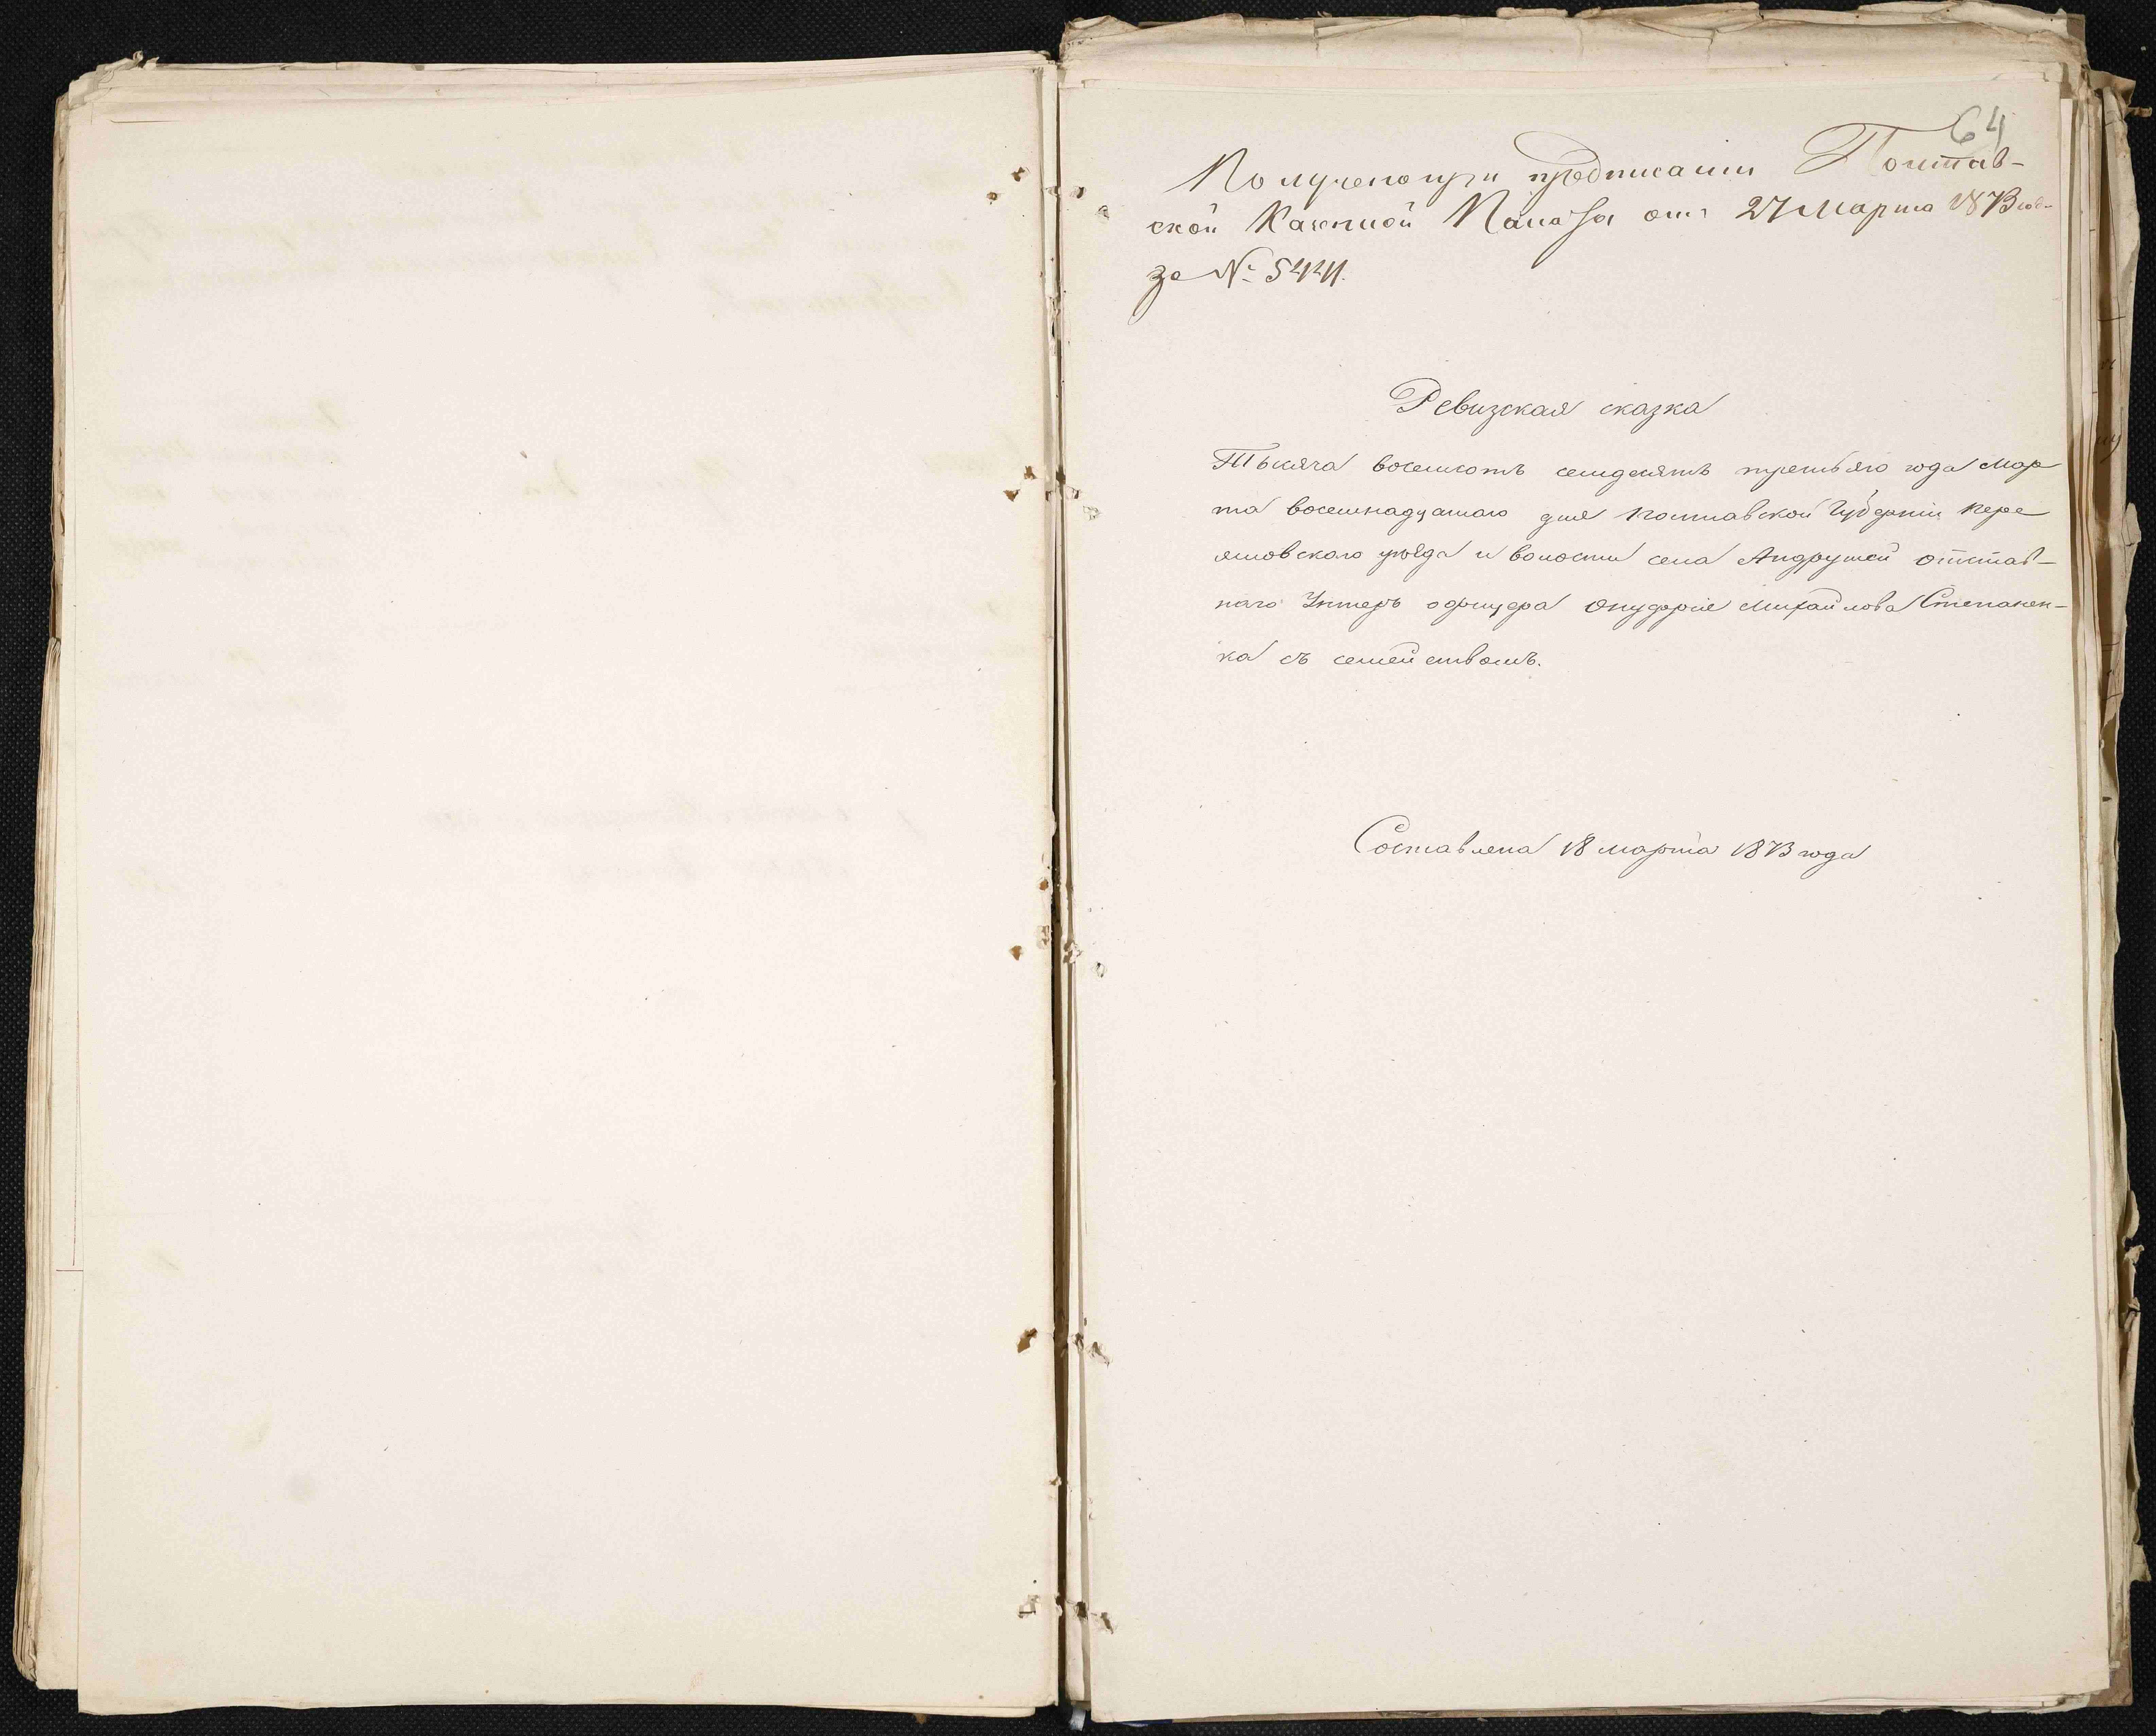 64
Получено при предписаніи Полтав-
ской Казенной Палаты отъ 27 Марта 1873 год-
за № 5441.
Ревизская сказка
Тысяча восемсотъ семдесятъ третьяго года Мар
та восемнадцатаго дня Полтавской Губерніи Пере
яславскаго уѣзда и волости села Андрушей отстав-
наго Унтеръ офицера Онуфрія Михайлова Степанен-
ка съ семействомъ.
Составлена 18 марта 1873 года